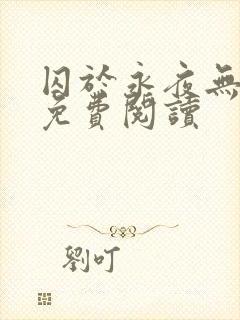 囚於永夜無
免費閱讀
劉叮